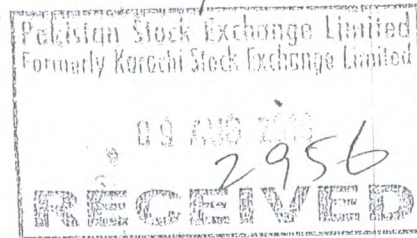 Pakistan Stock Exchange Limited
Formerly Karachi Stock Exchange Limited
09 AUG
2956
RECEIVED